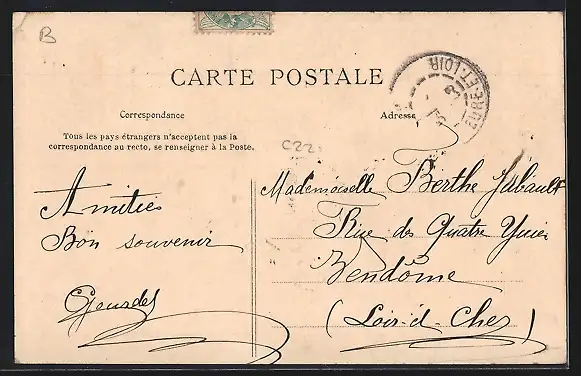 B
CARTE POSTALE
Correspondance
Adresse
Tous les pays étrangers n'acceptent pas la
correspondance au recto, se renseigner à la Poste.
C22
EURE-ET-LOIR
Mademoiselle Berthe Jabault
Rue des Quatre
Vendôme
(Loir-et-Cher)
Amitiés
Bon souvenir